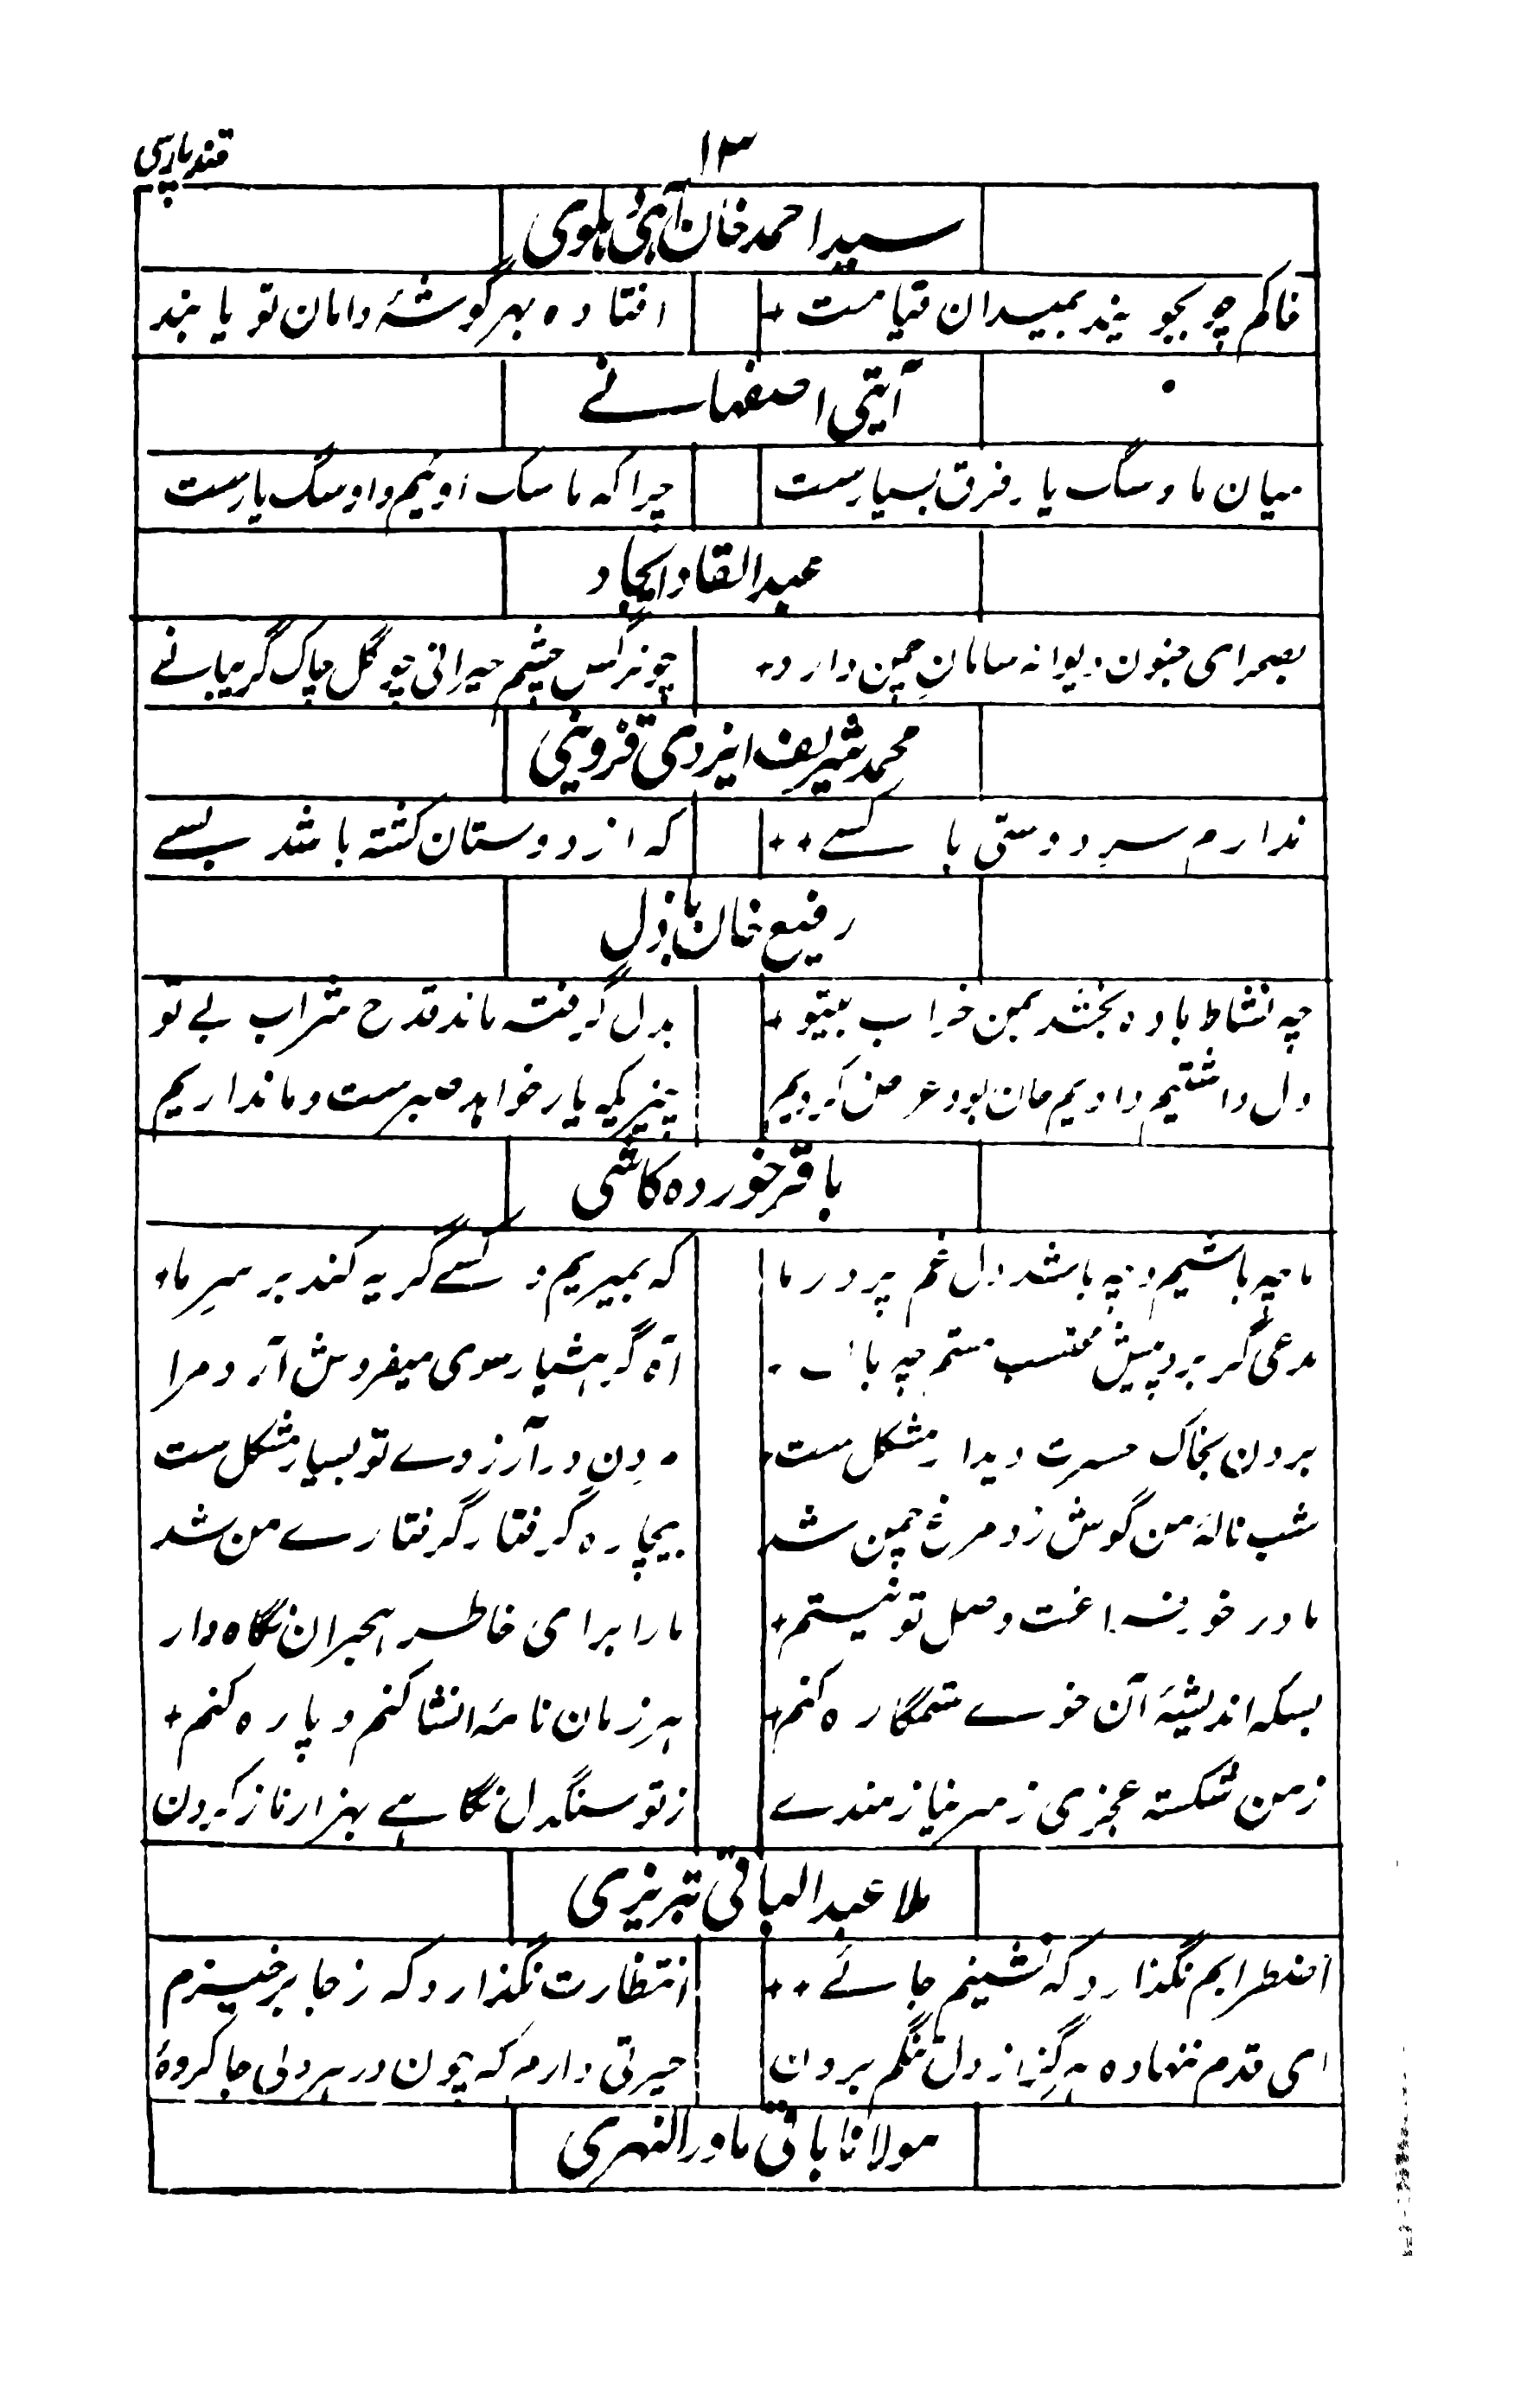 ۱۳
قند پارسی
سید احمد خان آہی دہلوی
خاکم چو بجویند بمیدان قیامت +
افتادہ بہر گوشۂ دامان تو یابند
آیتی اصفہانے
میان ما و سگ یار فرق بسیارست
چرا کہ ما سگ اوئیم و او سگ یارست
عبدالقادر ایجاد
بصحرای جنون دیوانہ سامانِ چمن دارد +
چو نرگس چشم حیرانی چو گل چاک گریبانے
محمد شریف ایزدی قزوینی
ندارم سرِ دوستی با کسے ++
کہ از دوستان کشتہ باشد بسے
رفیع خان باذل
چہ نشاط بادہ بخشد بمن خراب بیتو +
بدل گرفتہ ماند قدح شراب بے تو
دل داشتیم دادیم جان بود عرض کردیم
چیزیکہ یار خواہد صبرست و ما نداریم
باقر خوردہ کاشی
ما چہ باشیم و چہ باشد دل غم پرور ما
کہ بمیریم و کسے گریہ کند بر سرِ ما +
مدعی گر برد پیش محتسب مستم چہ باک
آہ گر ہشیار سوی میفروش آرد مرا
بردن بخاک حسرت دیدار مشکل ست +
دن در آرزوے تو بسیار مشکل ست
شب نالۂ من گوش زد مرغ چمن شد
بیچارہ گرفتار گرفتارے من شد
ما در خور فراغت وصل تو نیستم +
ما را برای خاطر ہجران نگاہ دار
بسکہ اندیشۂ آن خوے ستمگارہ کنم +
ہر زمان نامۂ انشا کنم و پارہ کنم +
زمن شکستہ عجزی ز سر نیازمندے
ز تو سنگدل نگاہے بہزار ناز کردن
ملا عبدالباقی تبریزی
اضطرابم نگذارد کہ نشینم جائے ++
انتظارت نگذارد کہ ز جا برخیزم
ای قدم ننہادہ ہرگز از دل تنگم برون
حیرتی دارم کہ چون در ہر دلی جا کردۂ
مولانا باقی ماورالنہری